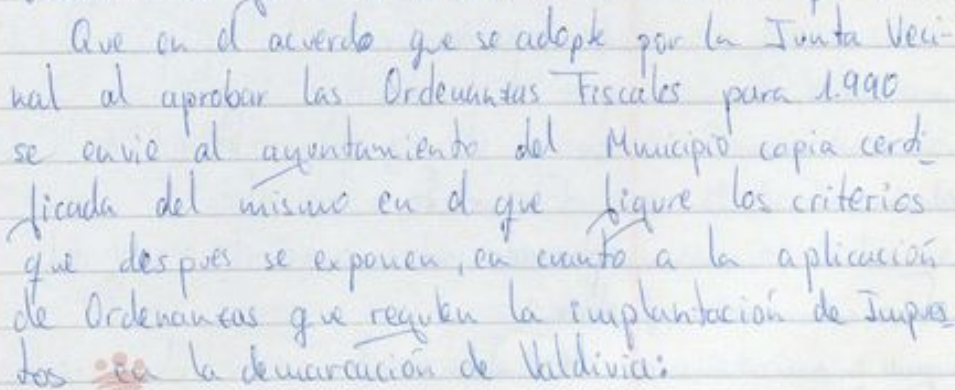 Que en el acuerdo que se adopte por la Junta Veci-
nal al aprobar las Ordenanzas Fiscales para 1.990
se envie al ayuntamiento del Municipio copia certi_
ficada del mismo en el que figure los criterios
que despues se exponen, en cuanto a la aplicación
de Ordenanzas que regulen la implantación de Impues
tos en la demarcación de Valdivia: